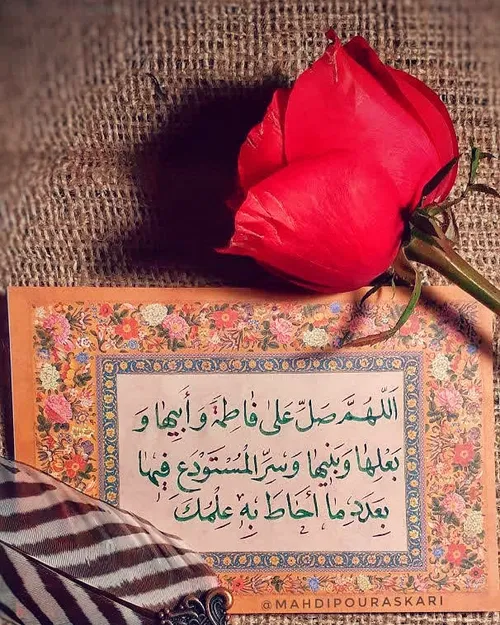 اَللّهُمَّ صَلِّ عَلىٰ فاطِمَةَ وَ أَبيها وَ
بَعْلِها وَ بَنيها وَ سِرِّ الْمُسْتَوْدَعِ فيها
بِعَدَدِ ما أَحاطَ بِهِ عِلْمُكَ
@MAHDIPOURASKARI